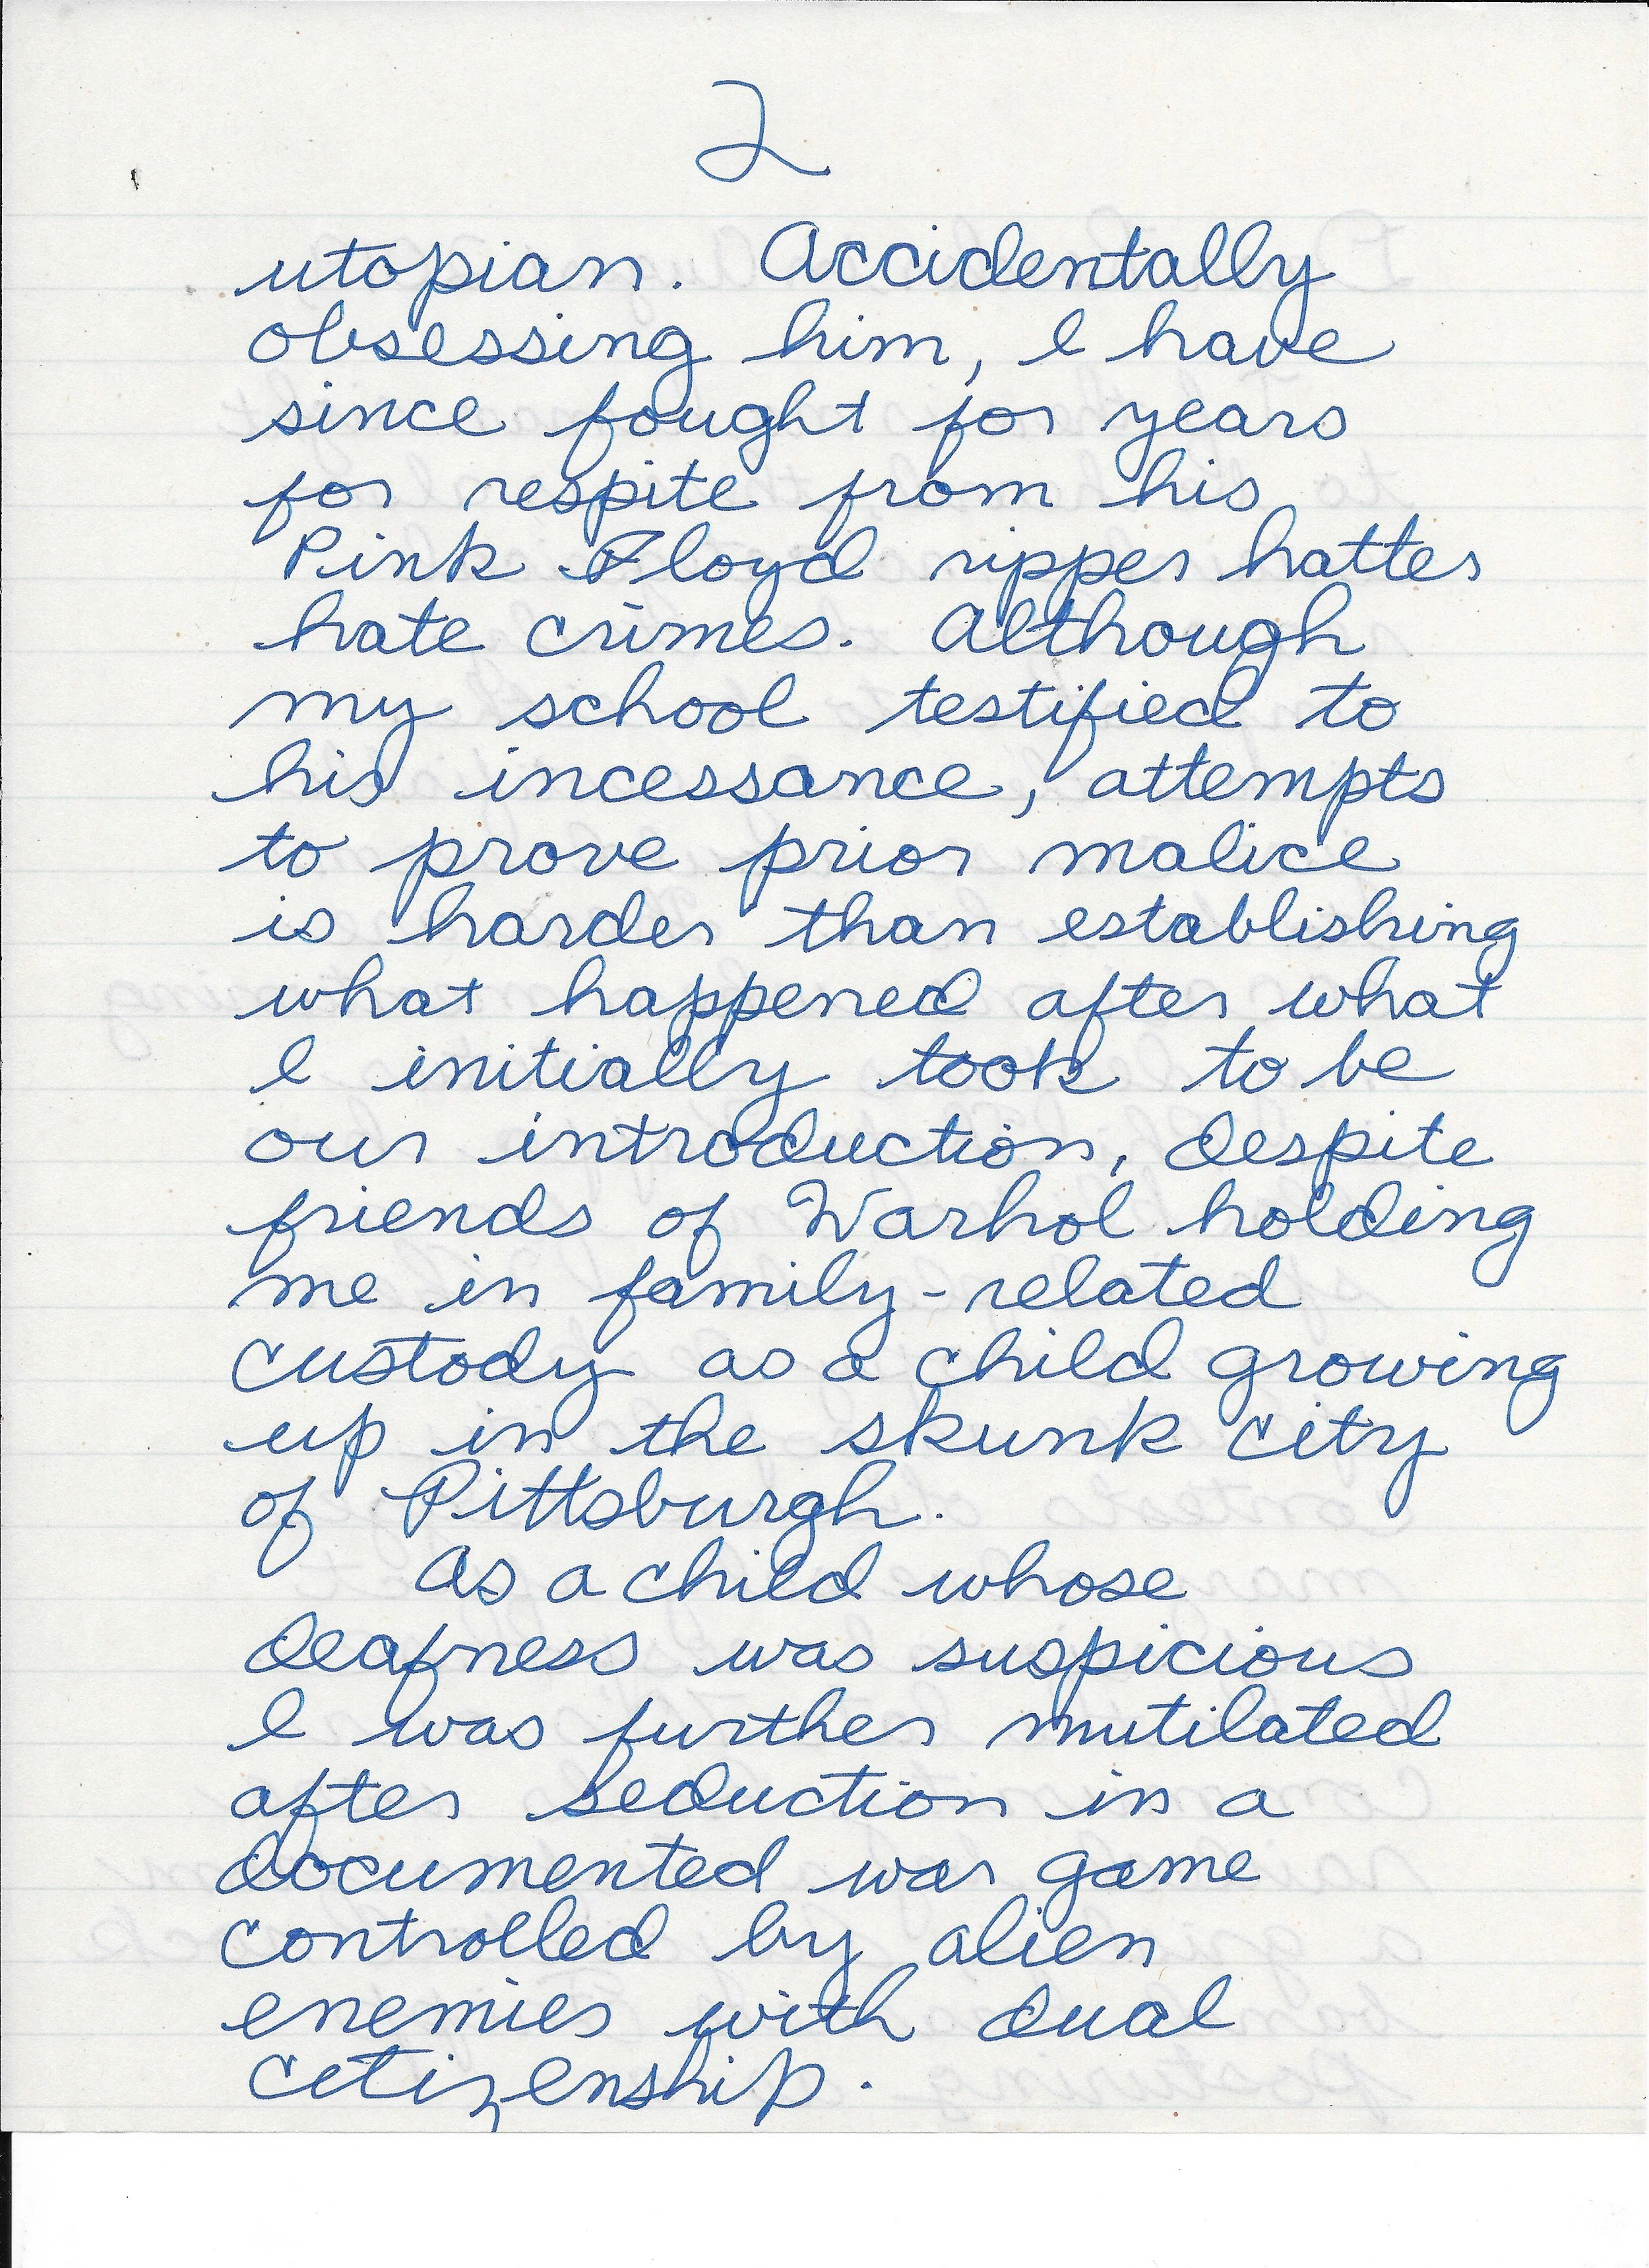 2
utopian. Accidentally
obsessing him, I have
since fought for years
for respite from his
Pink Floyd ripper hatter
hate crimes. Although
my school testified to
his incessance, attempts
to prove prior malice
is harder than establishing
what happened after what
I initially took to be
our introduction, despite
friends of Warhol holding
me in family-related
custody as a child growing
up in the skunk city
of Pittsburgh.
As a child whose
deafness was suspicious
I was further mutilated
after seduction in a
documented war game
controlled by alien
enemies with dual
citizenship.